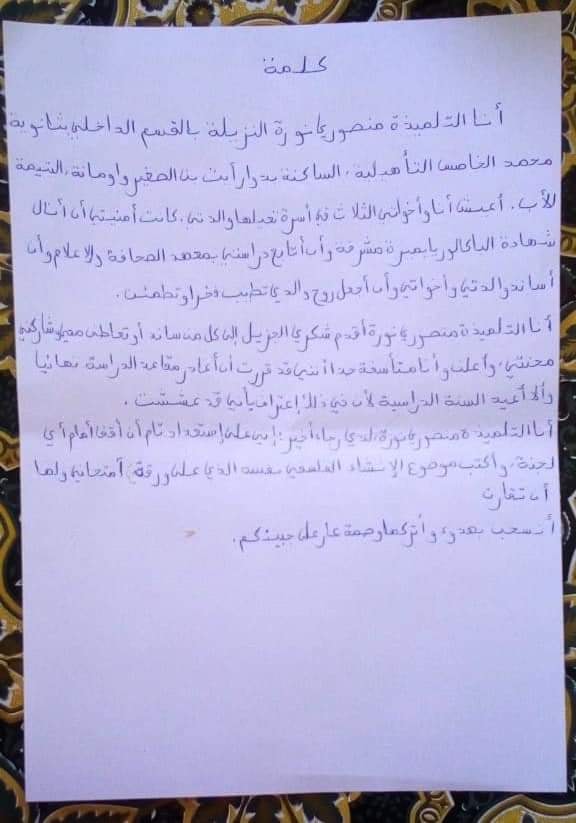 كلمة
أنا التلميذة منصوري نورة النزيلة بالقسم الداخلي بثانوية
محمد الخامس التأهيلية، الساكنة بدوار أيت بن الصغير واومانة، اليتيمة
للأب. أعيش أنا وأخواتي الثلاث في أسرة تعيلها والدتي. كانت أمنيتي أن أنال
شهادة الباكالوريا بميزة مشرفة وأن أتابع دراستي بمعهد الصحافة والاعلام وأن
أساند والدتي وأخواتي وأن أجعل روح والدي تطيب فخرا وتطمئن.
أنا التلميذة منصوري نورة أقدم شكري الجزيل إلى كل من ساند أو تعاطف معي وشاركني
محنتي، وأعلن وأنا متأسفة جدا أنني قد قررت أن أغادر مقاعد الدراسة نهائيا
وألا أعيد السنة الدراسية لأن في ذلك إعتراف بأني قد غششت.
أنا التلميذة منصوري نورة، لدي رجاء أخير: إني على إستعداد تام أن أقف أمام أي
لجنة، وأكتب موضوع الإنشاء الفلسفي نفسه الذي على ورقة إمتحاني ولها
أن تقارن
أنسحب بهدوء وأتركها وصمة عار على جبينكم.